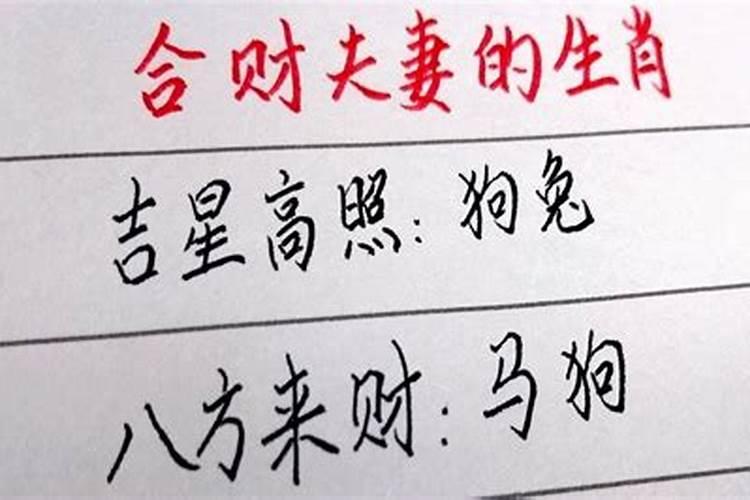 合财夫妻的生肖
吉星高照:狗兔
八方来财:马狗